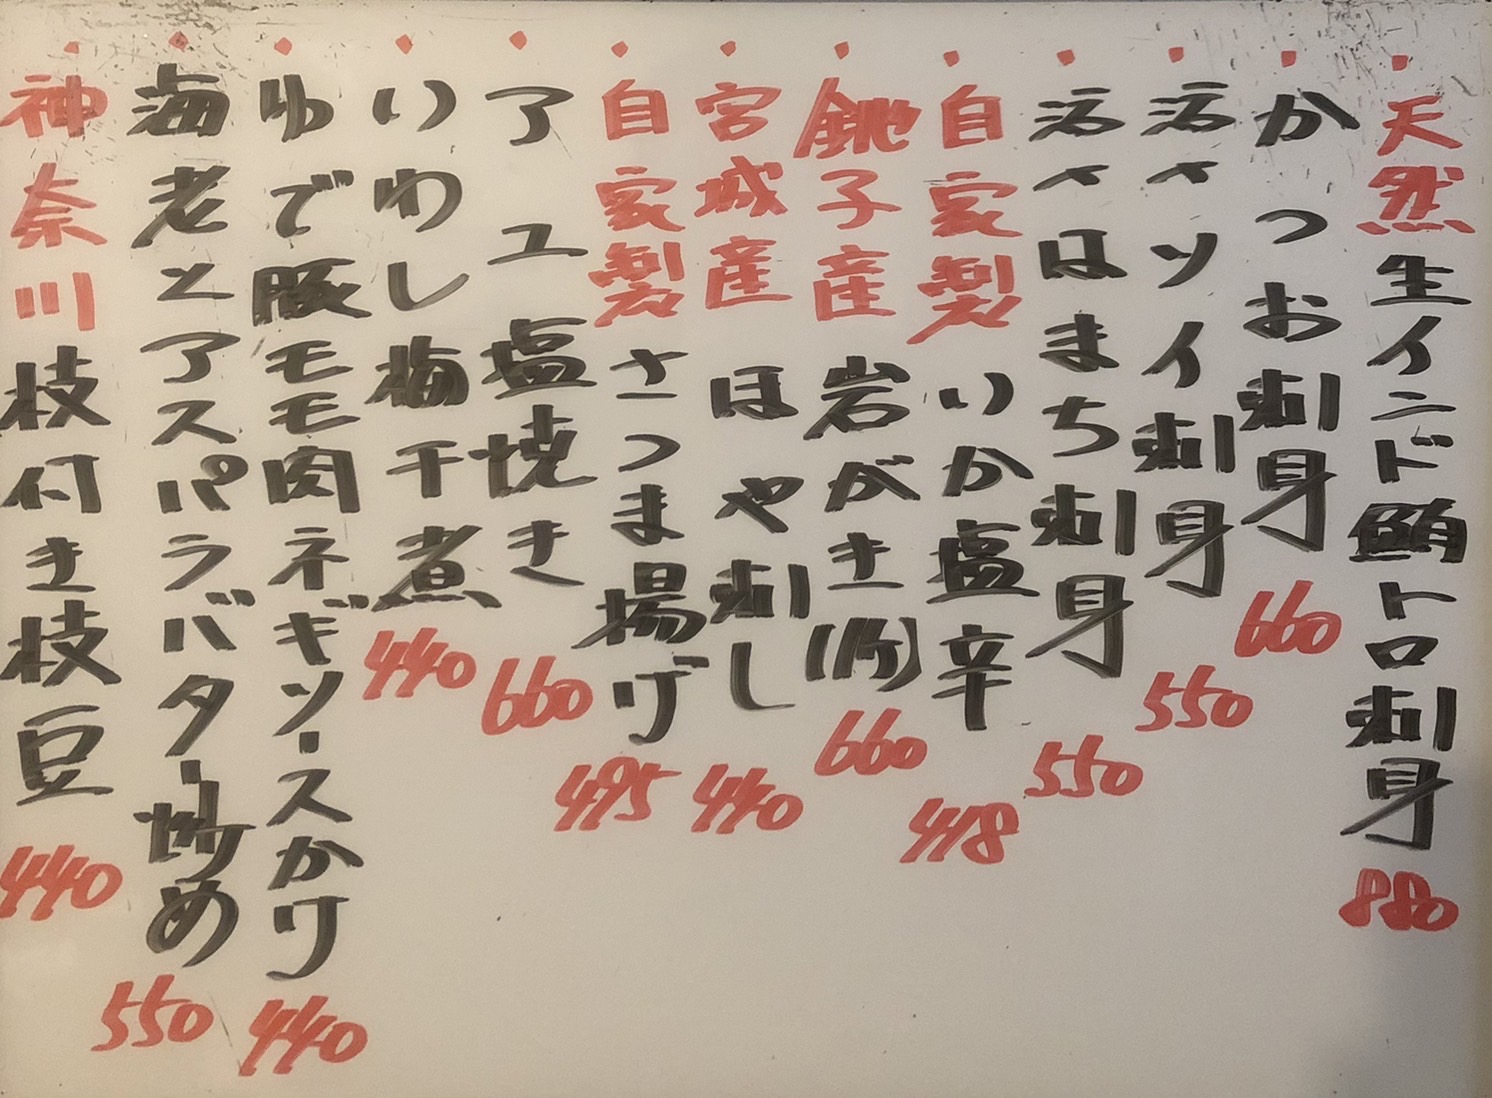 ・天然生インド鮪トロ刺身 880
・かつお刺身 660
・活〆ソイ刺身 550
・活〆はまち刺身 550
・自家製いか塩辛 418
・銚子産岩がき(1ケ) 660
・宮城産ほや刺し 440
・自家製さつま揚げ 495
・アユ塩焼き 660
・いわし梅干煮 440
・ゆで豚モモ肉ネギソースかけ 440
・海老とアスパラバター炒め 550
・神奈川枝付き枝豆 440